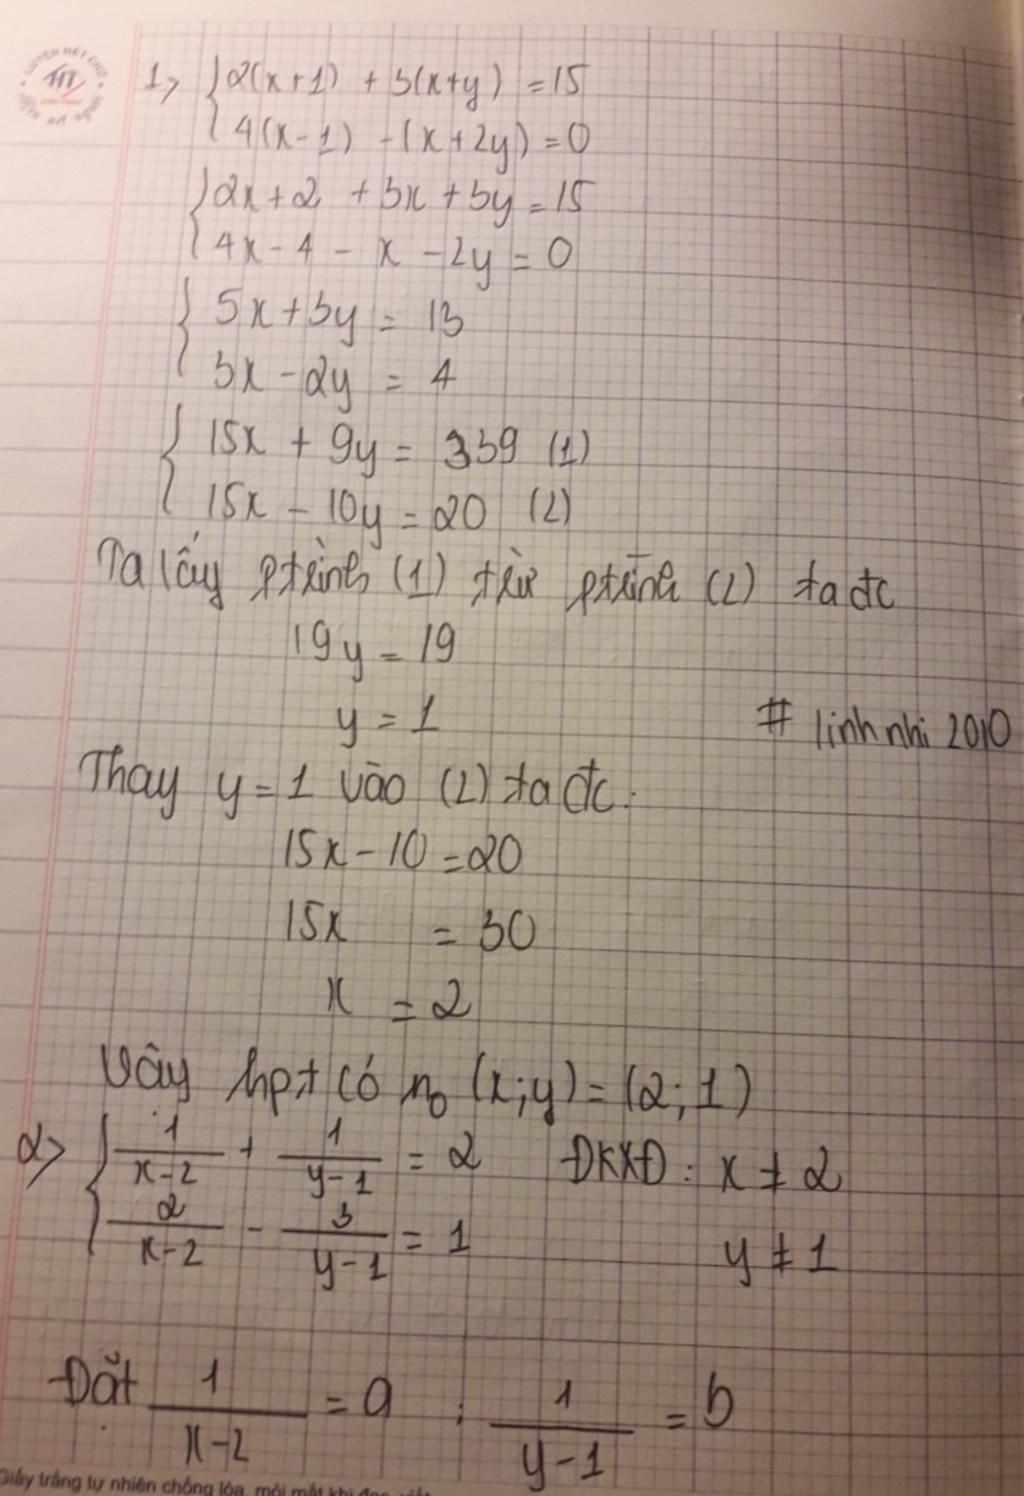 1, { 2(x+1) + 3(x+y) = 15
{ 4(x-1) - (x+2y) = 0
{ 2x+2 + 3x + 3y = 15
{ 4x - 4 - x - 2y = 0
{ 5x + 3y = 13
{ 3x - 2y = 4
{ 15x + 9y = 339 (1)
{ 15x - 10y = 20 (2)
Ta lấy ptrình (1) trừ ptrình (2) ta đc
19y = 19
y = 1
# linhnhi 2010
Thay y = 1 vào (2) ta đc:
15x - 10 = 20
15x = 30
x = 2
Vậy hpt có n0 (x;y) = (2;1)
2, { 1/(x-2) + 1/(y-1) = 2 ĐKXĐ: x ≠ 2
{ 2/(x-2) - 3/(y-1) = 1 y ≠ 1
Đặt 1/(x-2) = a ; 1/(y-1) = b
Giấy trắng tự nhiên chống lóa, mỏi mắt khi đọc, viết